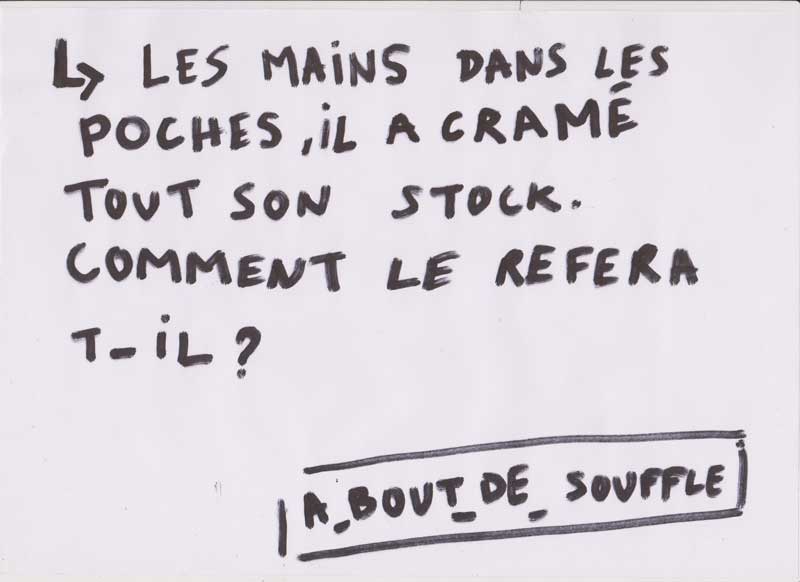 ↳ LES MAINS DANS LES
POCHES, IL A CRAMÉ
TOUT SON STOCK.
COMMENT LE REFERA
T-IL ?
A_BOUT_DE_SOUFFLE